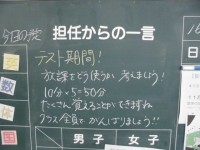 担任からの一言
テスト期間!
放課をどう使うか考えましょう!
10分×5=50分
たくさん覚えることができますね
クラス全員でがんばりましょう!!
男子 女子